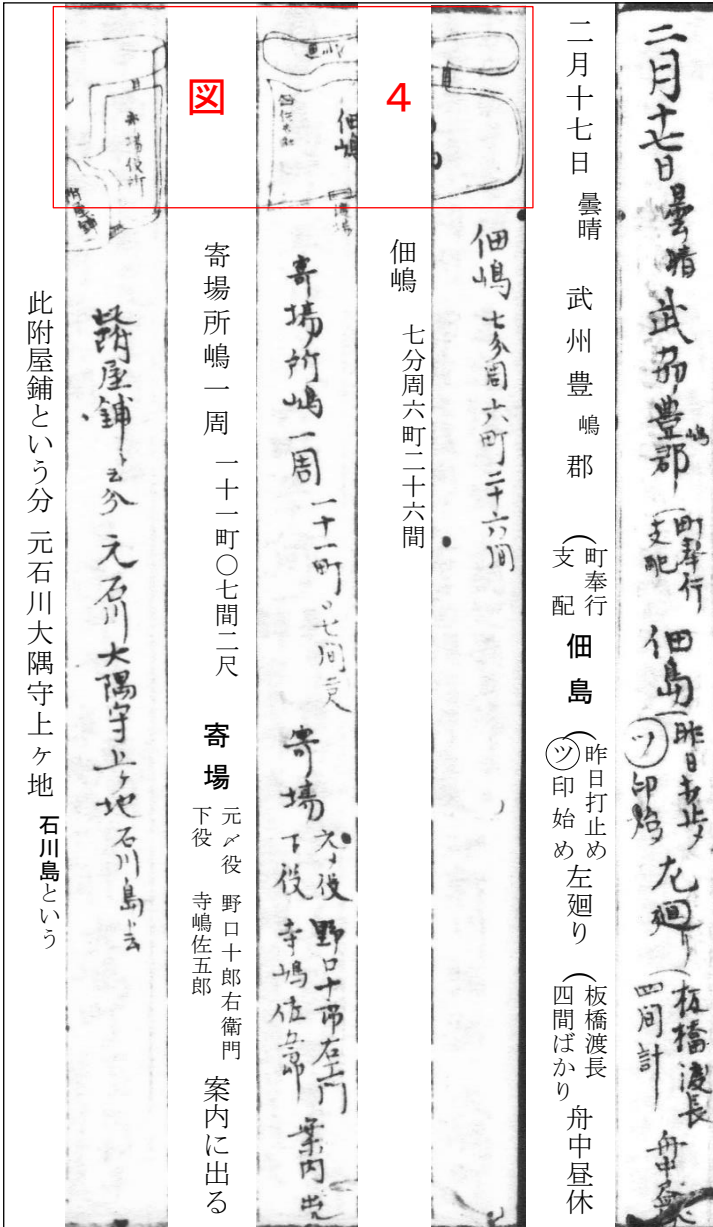 二月十七日 曇晴 武州豊嶋郡 (町奉行支配 佃島 (昨日打止ツ印始 左廻り (板橋渡長四間計 舟中昼休
二月十七日 曇晴 武州豊嶋郡 (町奉行支配 佃島 (昨日打止め ㋡印始め 左廻り (板橋渡長四間ばかり 舟中昼休
佃嶋 七分周六町二十六間
4
佃嶋 七分周六町二十六間
佃嶋
寄場所嶋一周 一十一町〇七間二尺 寄場 元〆役 下役 野口十郎右エ門 寺嶋佐五郎 案内出
図
寄場所嶋一周 一十一町〇七間二尺 寄場 元〆役 下役 野口十郎右衛門 寺嶋佐五郎 案内に出る
寄場役所
此附屋鋪ト云分 元石川大隅守上ヶ地 石川島ト云
此附屋鋪という分 元石川大隅守上ヶ地 石川島という